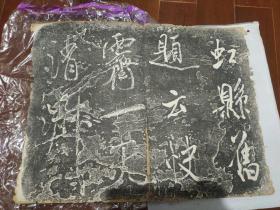 虹縣舊
題云快
霽一天
清淑